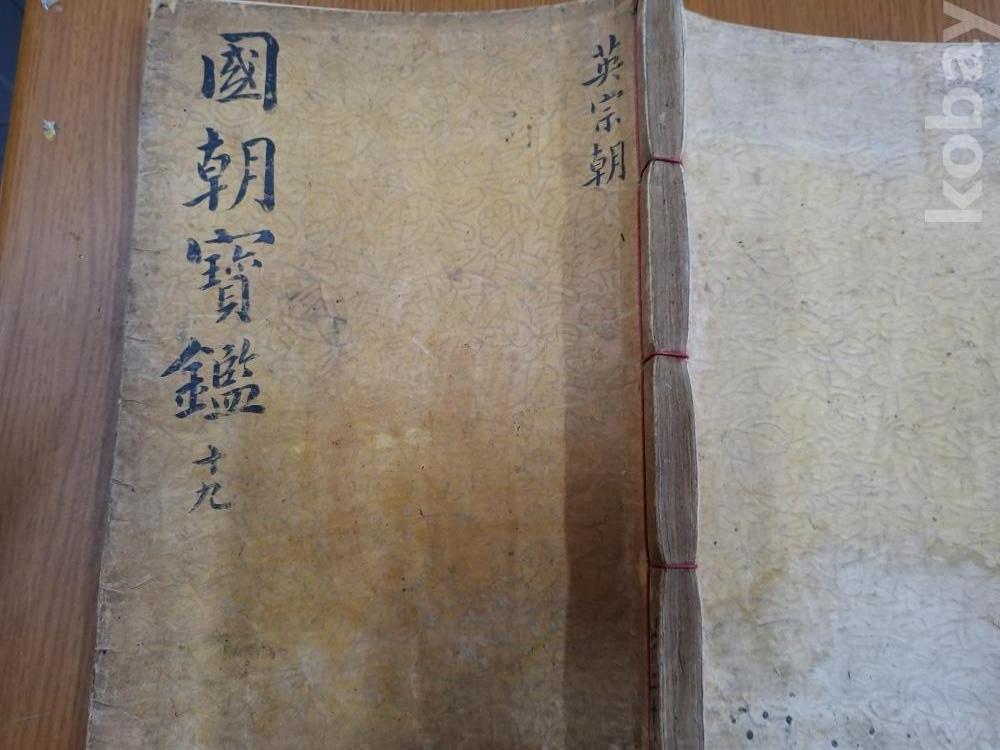 國朝寶鑑 十九
英宗朝
kobay